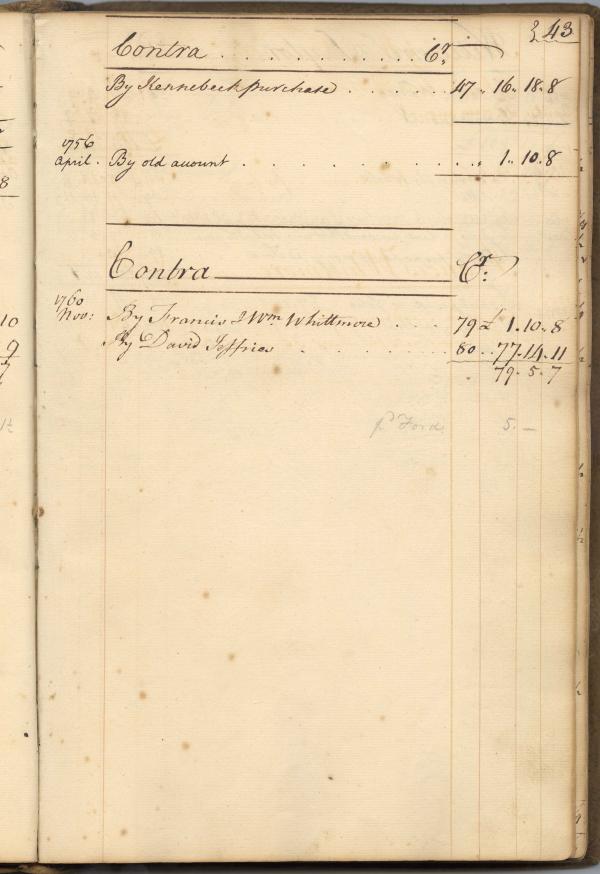 43
Contra . . . . . . . . . . . . Cr.
By Kennebeck purchase . . . . . 47 " 16 " 18 " 8
1756
April . By old account . . . . . . . . . . " 1 " 10 " 8
Contra Cr.
1760
Nov: By Francis & Wm Whittmore . . . . 79 £ 1 " 10 " 8
By David Jeffries . . . . . . . . . 80 . . 77 " 14 " 11
79 " 5 " 7
pd Ford 5 . —